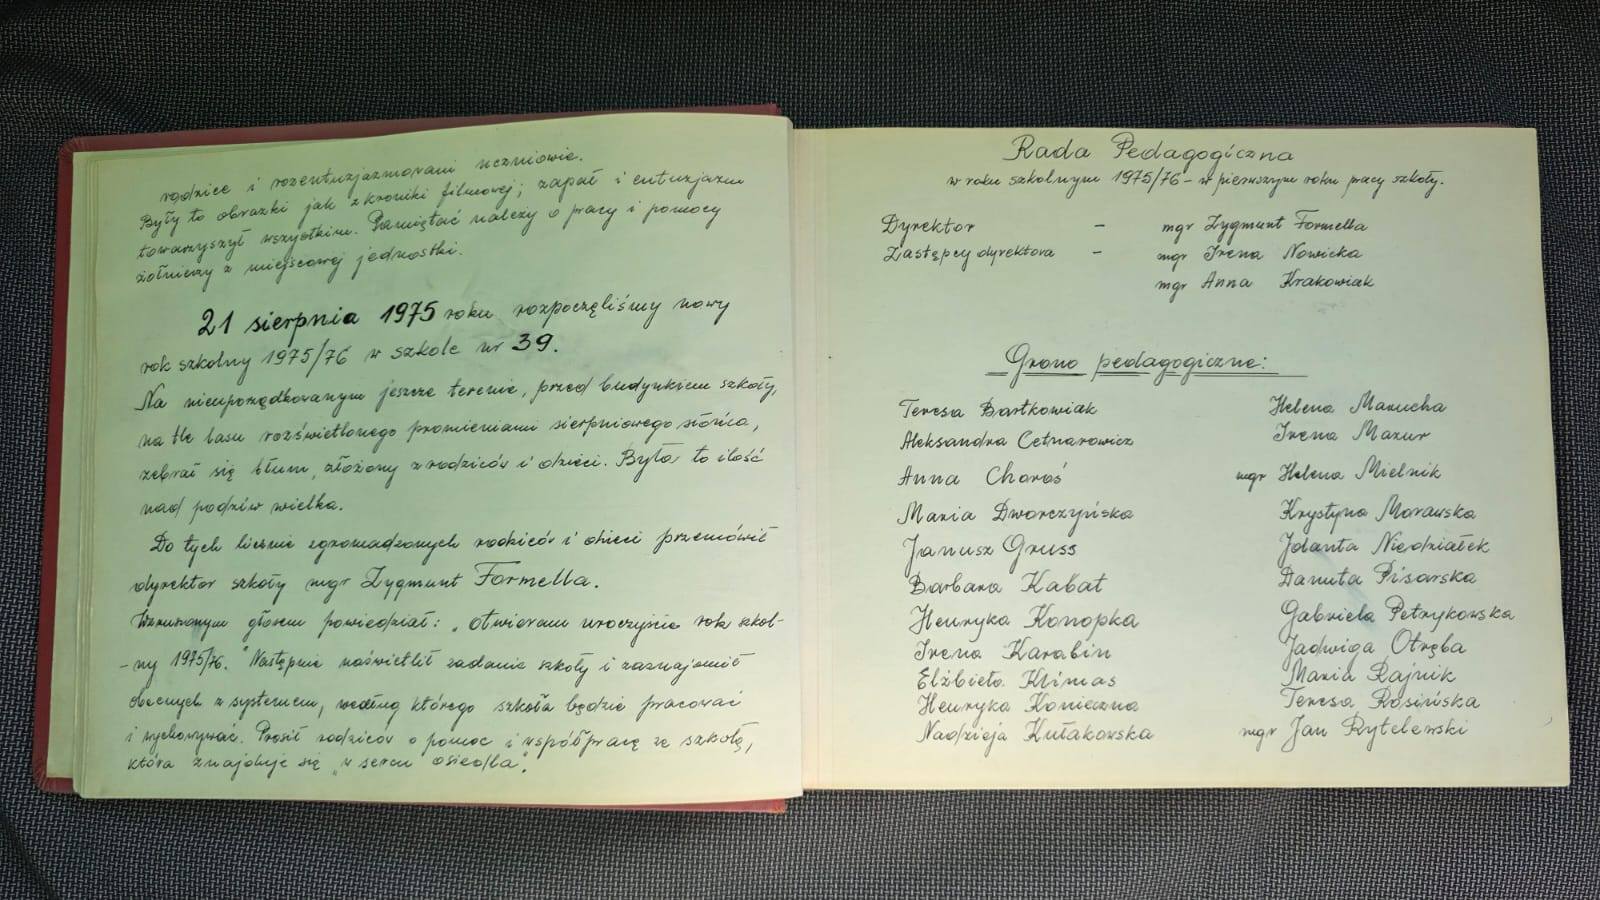 rodzice i rozentuzjazmowani uczniowie.
Były to obrazki jak z kroniki filmowej; zapał i entuzjazm
towarzyszył wszystkim. Pamiętać należy o pracy i pomocy
żołnierzy z miejscowej jednostki.
21 sierpnia 1975 roku rozpoczęliśmy nowy
rok szkolny 1975/76 w szkole nr 39.
Na nieuporządkowanym jeszcze terenie, przed budynkiem szkoły,
na tle lasu rozświetlonego promieniami sierpniowego słońca,
zebrał się tłum, złożony z rodziców i dzieci. Była to ilość
nad podziw wielka.
Do tych licznie zgromadzonych rodziców i dzieci przemówił
dyrektor szkoły mgr Zygmunt Formella.
Wzruszonym głosem powiedział: „Otwieram uroczyście rok szkol-
-ny 1975/76." Następnie naświetlił zadania szkoły i zaznajomił
obecnych z systemem, według którego szkoła będzie pracować
i wychowywać. Prosił rodziców o pomoc i współpracę ze szkołą,
która znajduje się „w sercu osiedla".
Rada Pedagogiczna
w roku szkolnym 1975/76 - w pierwszym roku pracy szkoły.
Dyrektor - mgr Zygmunt Formella
Zastępcy dyrektora - mgr Irena Nowicka
mgr Anna Krakowiak
Grono pedagogiczne:
Teresa Bartkowiak
Aleksandra Cetnarowicz
Anna Choroś
Maria Dworczyńska
Janusz Gruss
Barbara Kabat
Henryka Konopka
Irena Karabin
Elżbieta Klimas
Henryka Konieczna
Nadzieja Kułakowska
Helena Marucha
Irena Mazur
mgr Helena Mielnik
Krystyna Morawska
Jolanta Niedziałek
Danuta Pisarska
Gabriela Petrykowska
Jadwiga Otręba
Maria Rajnik
Teresa Rosińska
mgr Jan Rytelewski